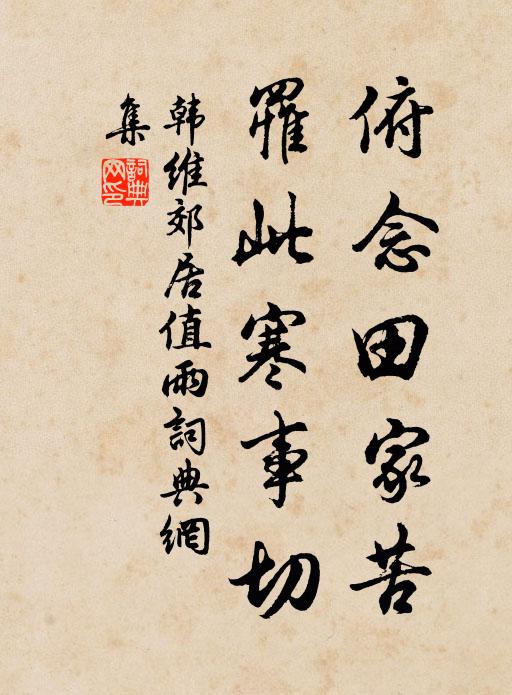 俯念田家苦
罹此寒事切
韩维郊居值雨詞典網
集
詞典
网印